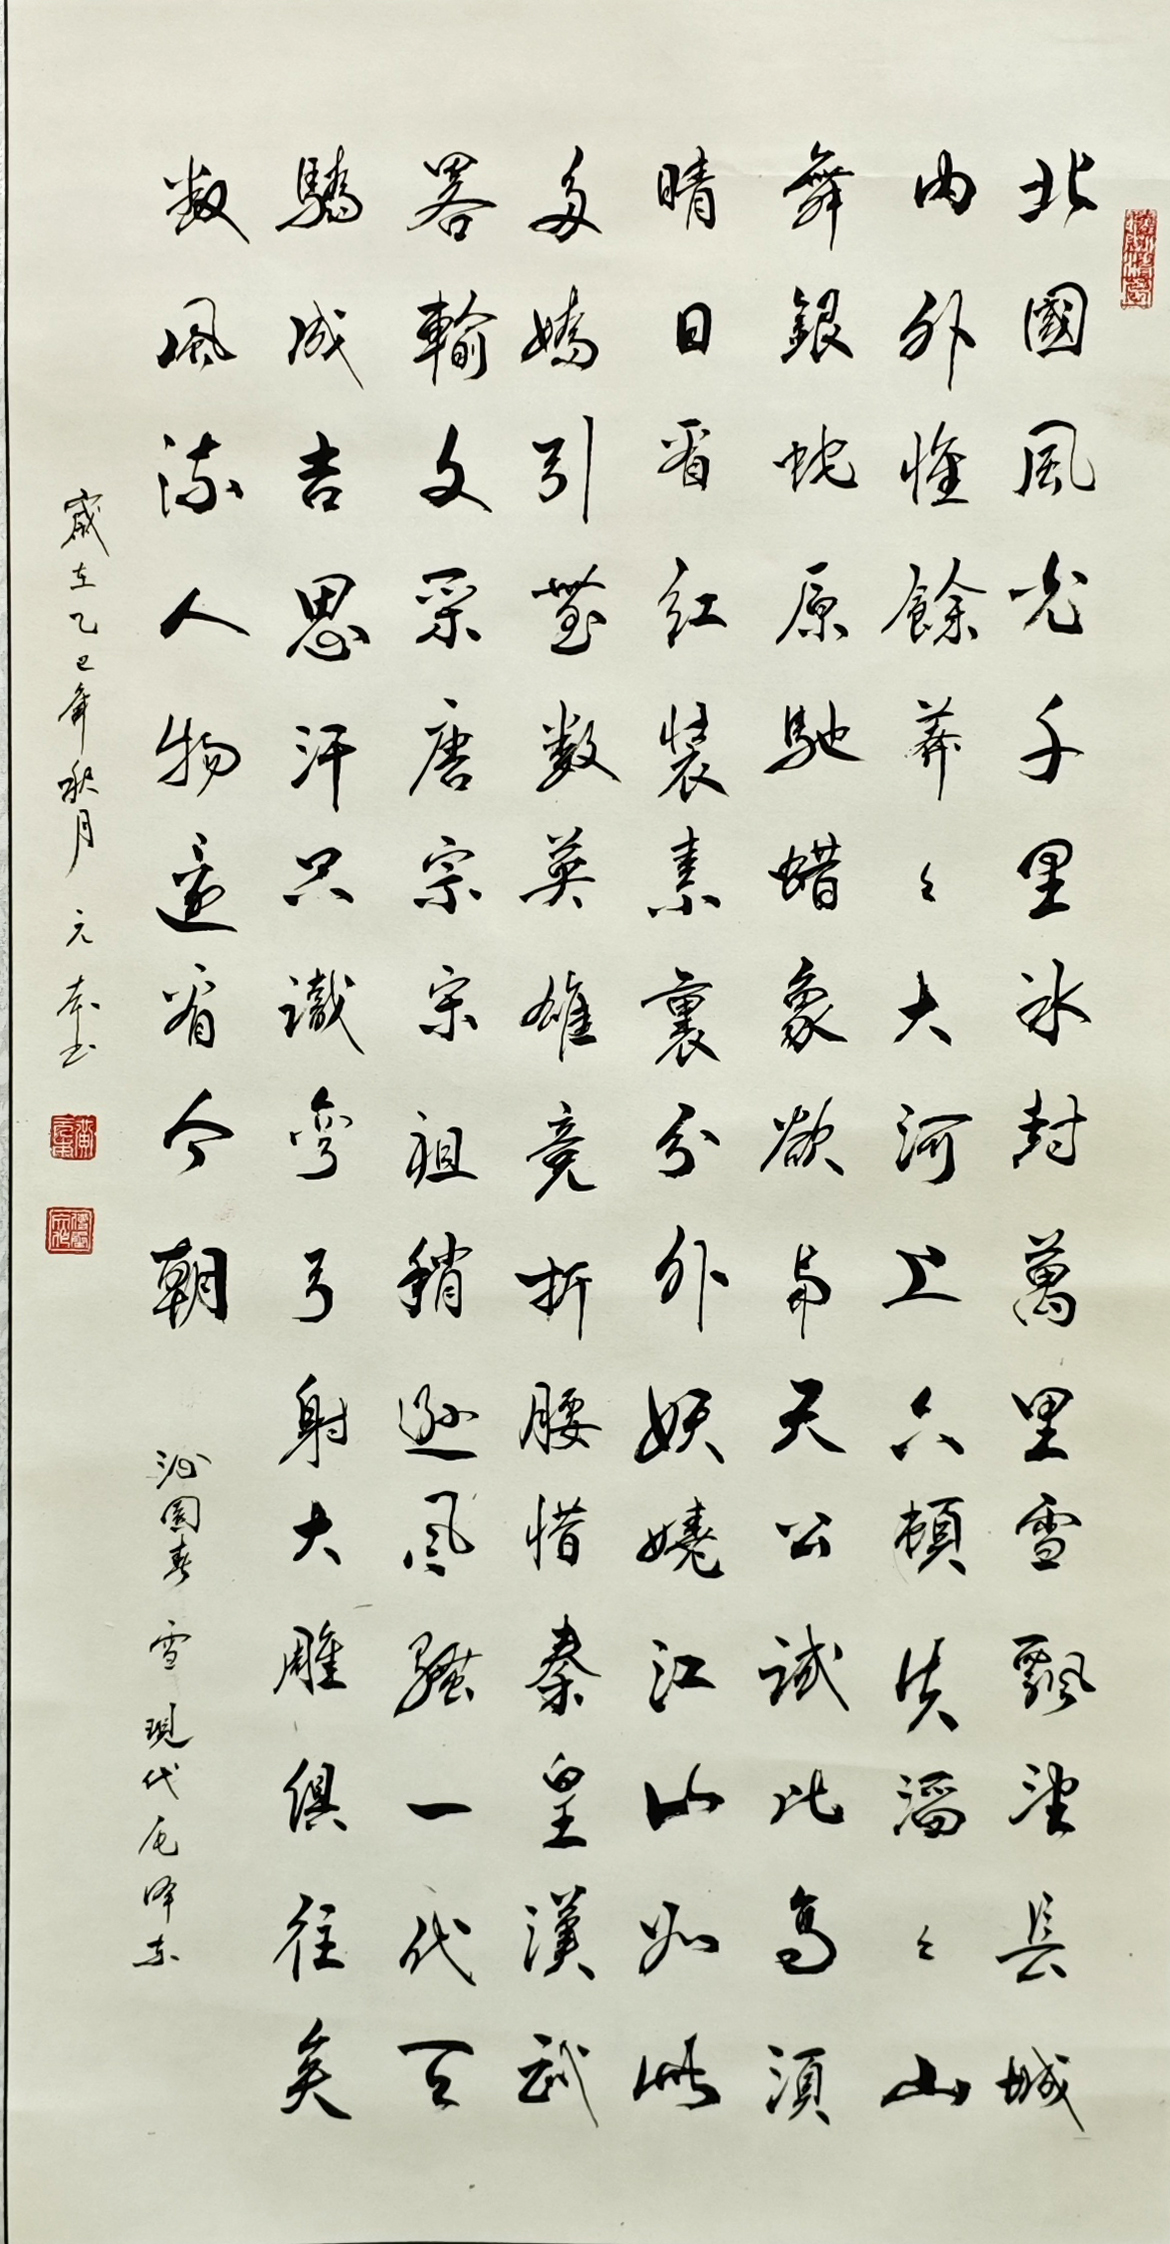 北國風光千里冰封萬里雪飄望長城
内外惟餘莽々大河上下頓失滔々山
舞銀蛇原馳蜡象欲与天公試比高須
晴日看紅裝素裹分外妖嬈江山如此
多嬌引無数英雄竞折腰惜秦皇漢武
畧輸文采唐宗宋祖稍遜風騷一代天
驕成吉思汗只識彎弓射大雕俱往矣
数風流人物還看今朝 沁園春 雪 現代毛泽东
歲在乙巳年秋月 元本书